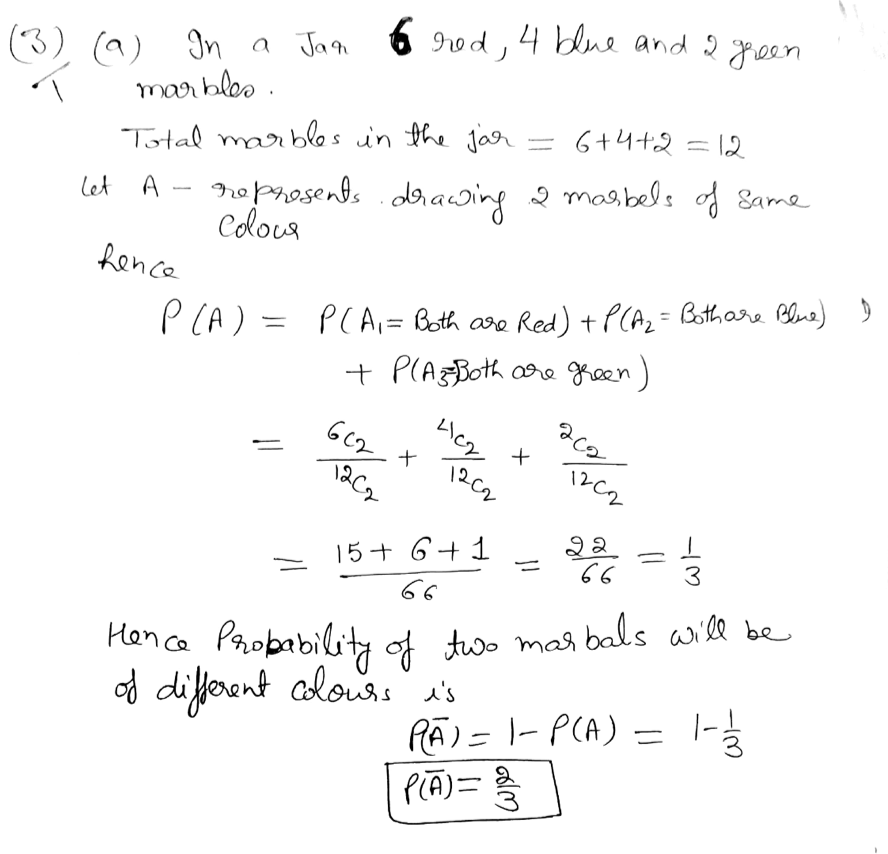 (3) (a) In a Jar 6 red, 4 blue and 2 green
marbles.
Total marbles in the jar = 6+4+2 = 12
Let A - represents drawing 2 marbels of Same
Colour
hence
P(A) = P(A₁ = Both are Red) + P(A₂ = Both are Blue)
+ P(A₃=Both are green)
= ⁶C₂/¹²C₂ + ⁴C₂/¹²C₂ + ²C₂/¹²C₂
= (15 + 6 + 1)/66 = 22/66 = 1/3
Hence Probability of two marbals will be
of different colours is
P(Ā) = 1 - P(A) = 1 - 1/3
P(Ā) = 2/3